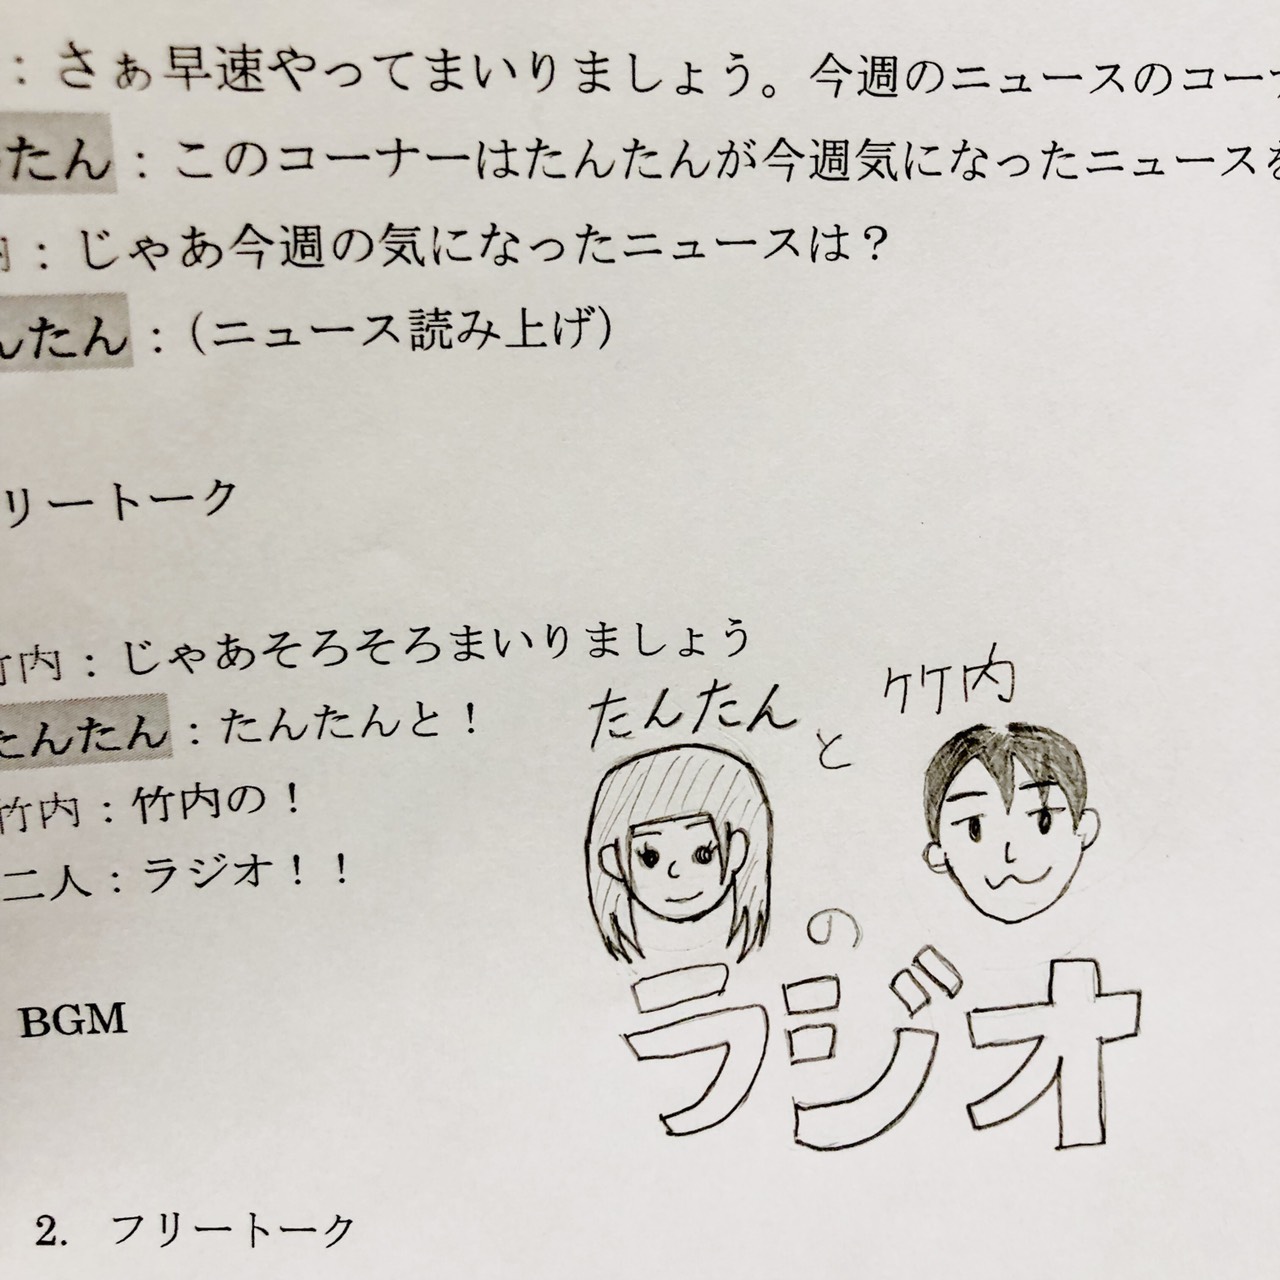 ：さぁ早速やってまいりましょう。今週のニュースのコーナ
たん：このコーナーはたんたんが今週気になったニュースを
内：じゃあ今週の気になったニュースは？
んたん：（ニュース読み上げ）
リートーク
竹内：じゃあそろそろまいりましょう
たんたん：たんたんと！
竹内：竹内の！
二人：ラジオ！！
たんたん
と
竹内
の
ラジオ
BGM
2. フリートーク